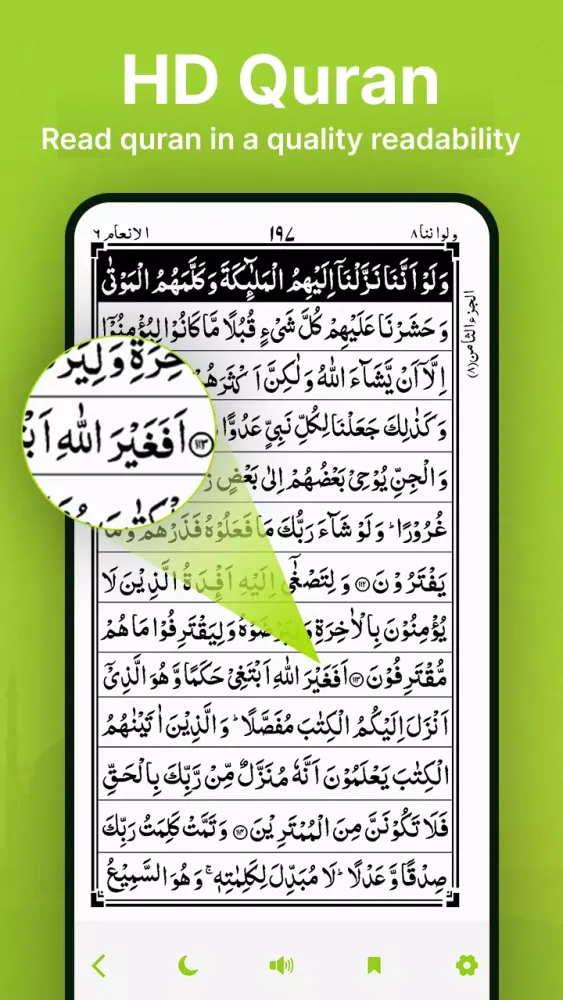 HD Quran
Read quran in a quality readability
ولواننا ٨
١٩٧
الانعام ٦
وَلَوْ اَنَّنَا نَزَّلْنَاۤ اِلَيْهِمُ الْمَلٰٓئِكَةَ وَكَلَّمَهُمُ الْمَوْتٰى
وَحَشَرْنَا عَلَيْهِمْ كُلَّ شَىْءٍ قُبُلًا مَّا كَانُوْا لِيُؤْمِنُوْۤا
اِلَّاۤ اَنْ يَّشَآءَ اللّٰهُ وَلٰكِنَّ اَكْثَرَهُمْ
وَكَذٰلِكَ جَعَلْنَا لِكُلِّ نَبِىٍّ عَدُوًّا
وَالْجِنِّ يُوْحِىْ بَعْضُهُمْ اِلٰى بَعْضٍ
غُرُوْرًا ؕ وَلَوْ شَآءَ رَبُّكَ مَا فَعَلُوْهُ فَذَرْهُمْ وَمَا
يَفْتَرُوْنَ ۝١١٢ وَلِتَصْغٰۤى اِلَيْهِ اَفْـِٕدَةُ الَّذِيْنَ لَا
يُؤْمِنُوْنَ بِالْاٰخِرَةِ وَلِيَرْضَوْهُ وَلِيَقْتَرِفُوْا مَا هُمْ
مُّقْتَرِفُوْنَ ۝١١٣ اَفَغَيْرَ اللّٰهِ اَبْتَغِىْ حَكَمًا وَّهُوَ الَّذِىْۤ
اَنْزَلَ اِلَيْكُمُ الْكِتٰبَ مُفَصَّلًا ؕ وَالَّذِيْنَ اٰتَيْنٰهُمُ
الْكِتٰبَ يَعْلَمُوْنَ اَنَّهٗ مُنَزَّلٌ مِّنْ رَّبِّكَ بِالْحَقِّ
فَلَا تَكُوْنَنَّ مِنَ الْمُمْتَرِيْنَ ۝١١٤ وَتَمَّتْ كَلِمَتُ رَبِّكَ
صِدْقًا وَّعَدْلًا ؕ لَا مُبَدِّلَ لِكَلِمٰتِهٖ ۚ وَهُوَ السَّمِيْعُ
الجزء الثامن (٨)
۝١١٣ اَفَغَيْرَ اللّٰهِ